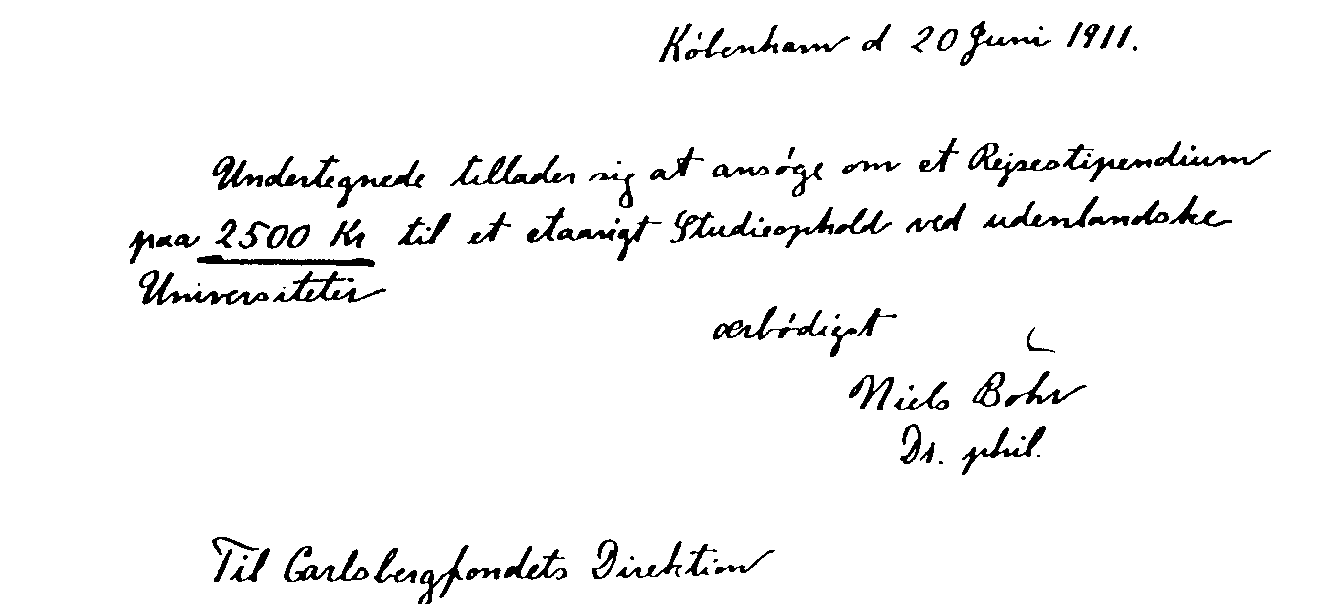 København d 20 Juni 1911.
Undertegnede tillader sig at ansøge om et Rejsestipendium
paa 2500 Kr til et etaarigt Studieophold ved udenlandske
Universiteter
ærbødigst
Niels Bohr
Dr. phil.
Til Carlsbergfondets Direktion